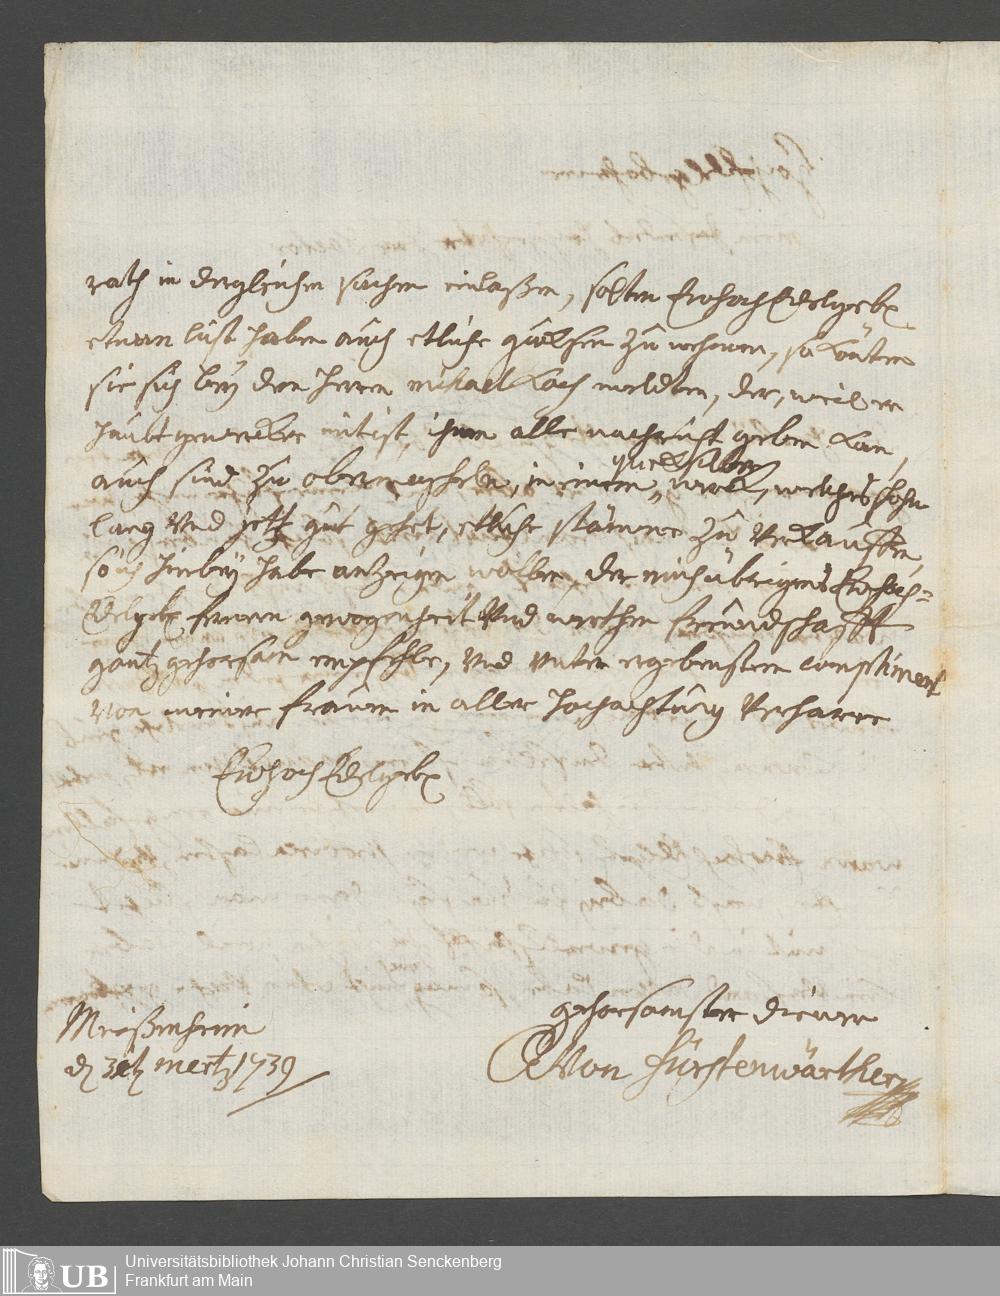 rath in dergleichen sachen einlaßen, solten Ewhoch Edelgeb
etwan lust haben auch etliche zu nehmen, so könten
sie sich bey dem Herren michael Koch meldten, der, weil er
haubt mit ist, ihnen alle nachricht geben kan,
quecksilber
auch sind zu obermoscheln, in einem, werck, welches schon
lang und jetz gut gehet, etliche stämme zu verkauffen,
so ich hierbey habe anzeigen wollen, der mich übrigens Ewhoch=
Edelgeb fernern gewogenheit und werthen freündschafft
gantz gehorsam empfehle, und unter ergebenstem compliment
von meiner frauen in aller hochachtung verharre
Ewhoch Edelgeb
gehorsamster diener
Von fürstenwärther
Meißenheim
d 31tz mertz 1739
UB
Universitätsbibliothek Johann Christian Senckenberg
Frankfurt am Main